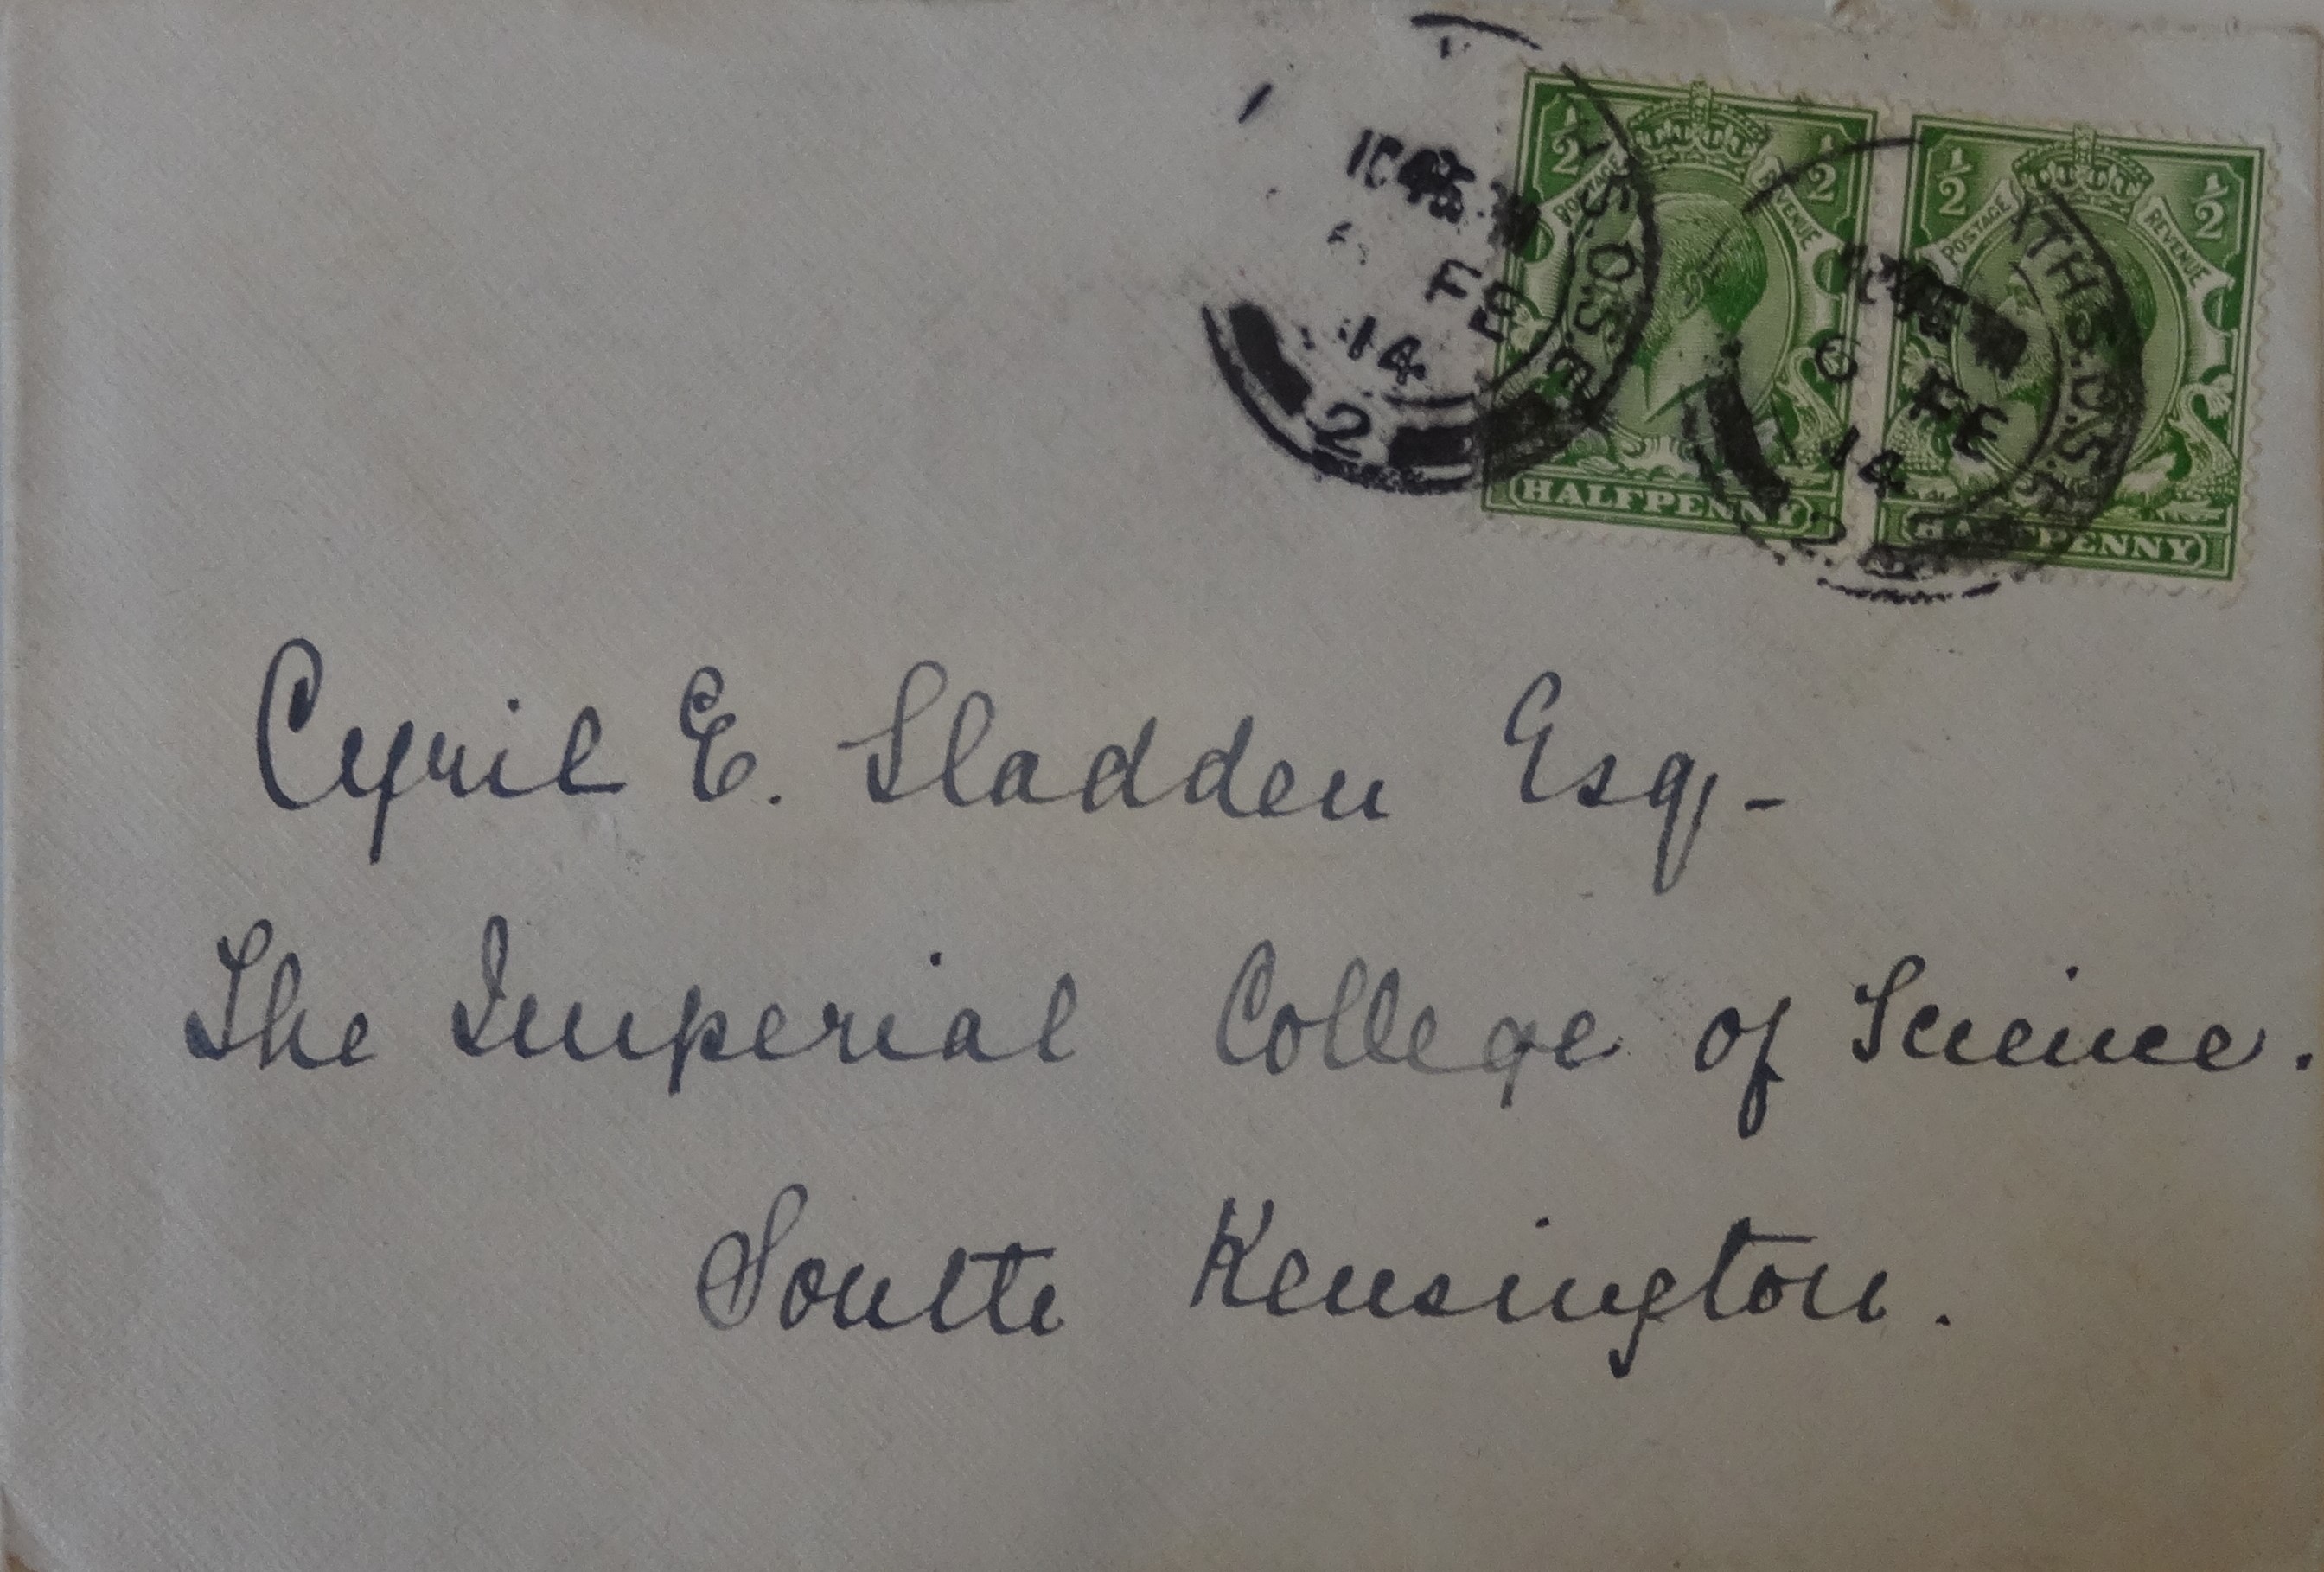 ½ ½
POSTAGE REVENUE
HALFPENNY
½ ½
POSTAGE REVENUE
HALFPENNY
FE
14
2
S.O.S.E.
6 FE
14
Cyril E. Sladden Esq-
The Imperial College of Science.
South Kensington.